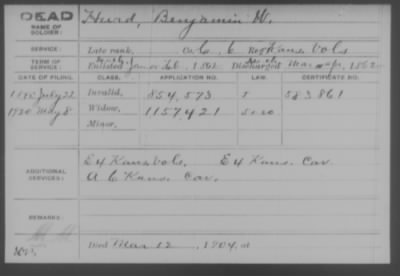 DEAD
NAME OF SOLDIER: Hurd, Benjamin W.
SERVICE: Late rank, Co. C, 6 Reg Kans. Vols
TERM OF SERVICE: Enlisted 1862 Discharged 1862
DATE OF FILING. CLASS. APPLICATION NO. LAW. CERTIFICATE NO.
1890 July 22 Invalid, 854,573 583861
1920 May 8 Widow, 1157421
Minor,
E 4 Kans Vols. E 4 Kans. Cav.
ADDITIONAL SERVICES: A 6 Kans. Cav.
REMARKS:
Died Mar 12, 1904, at